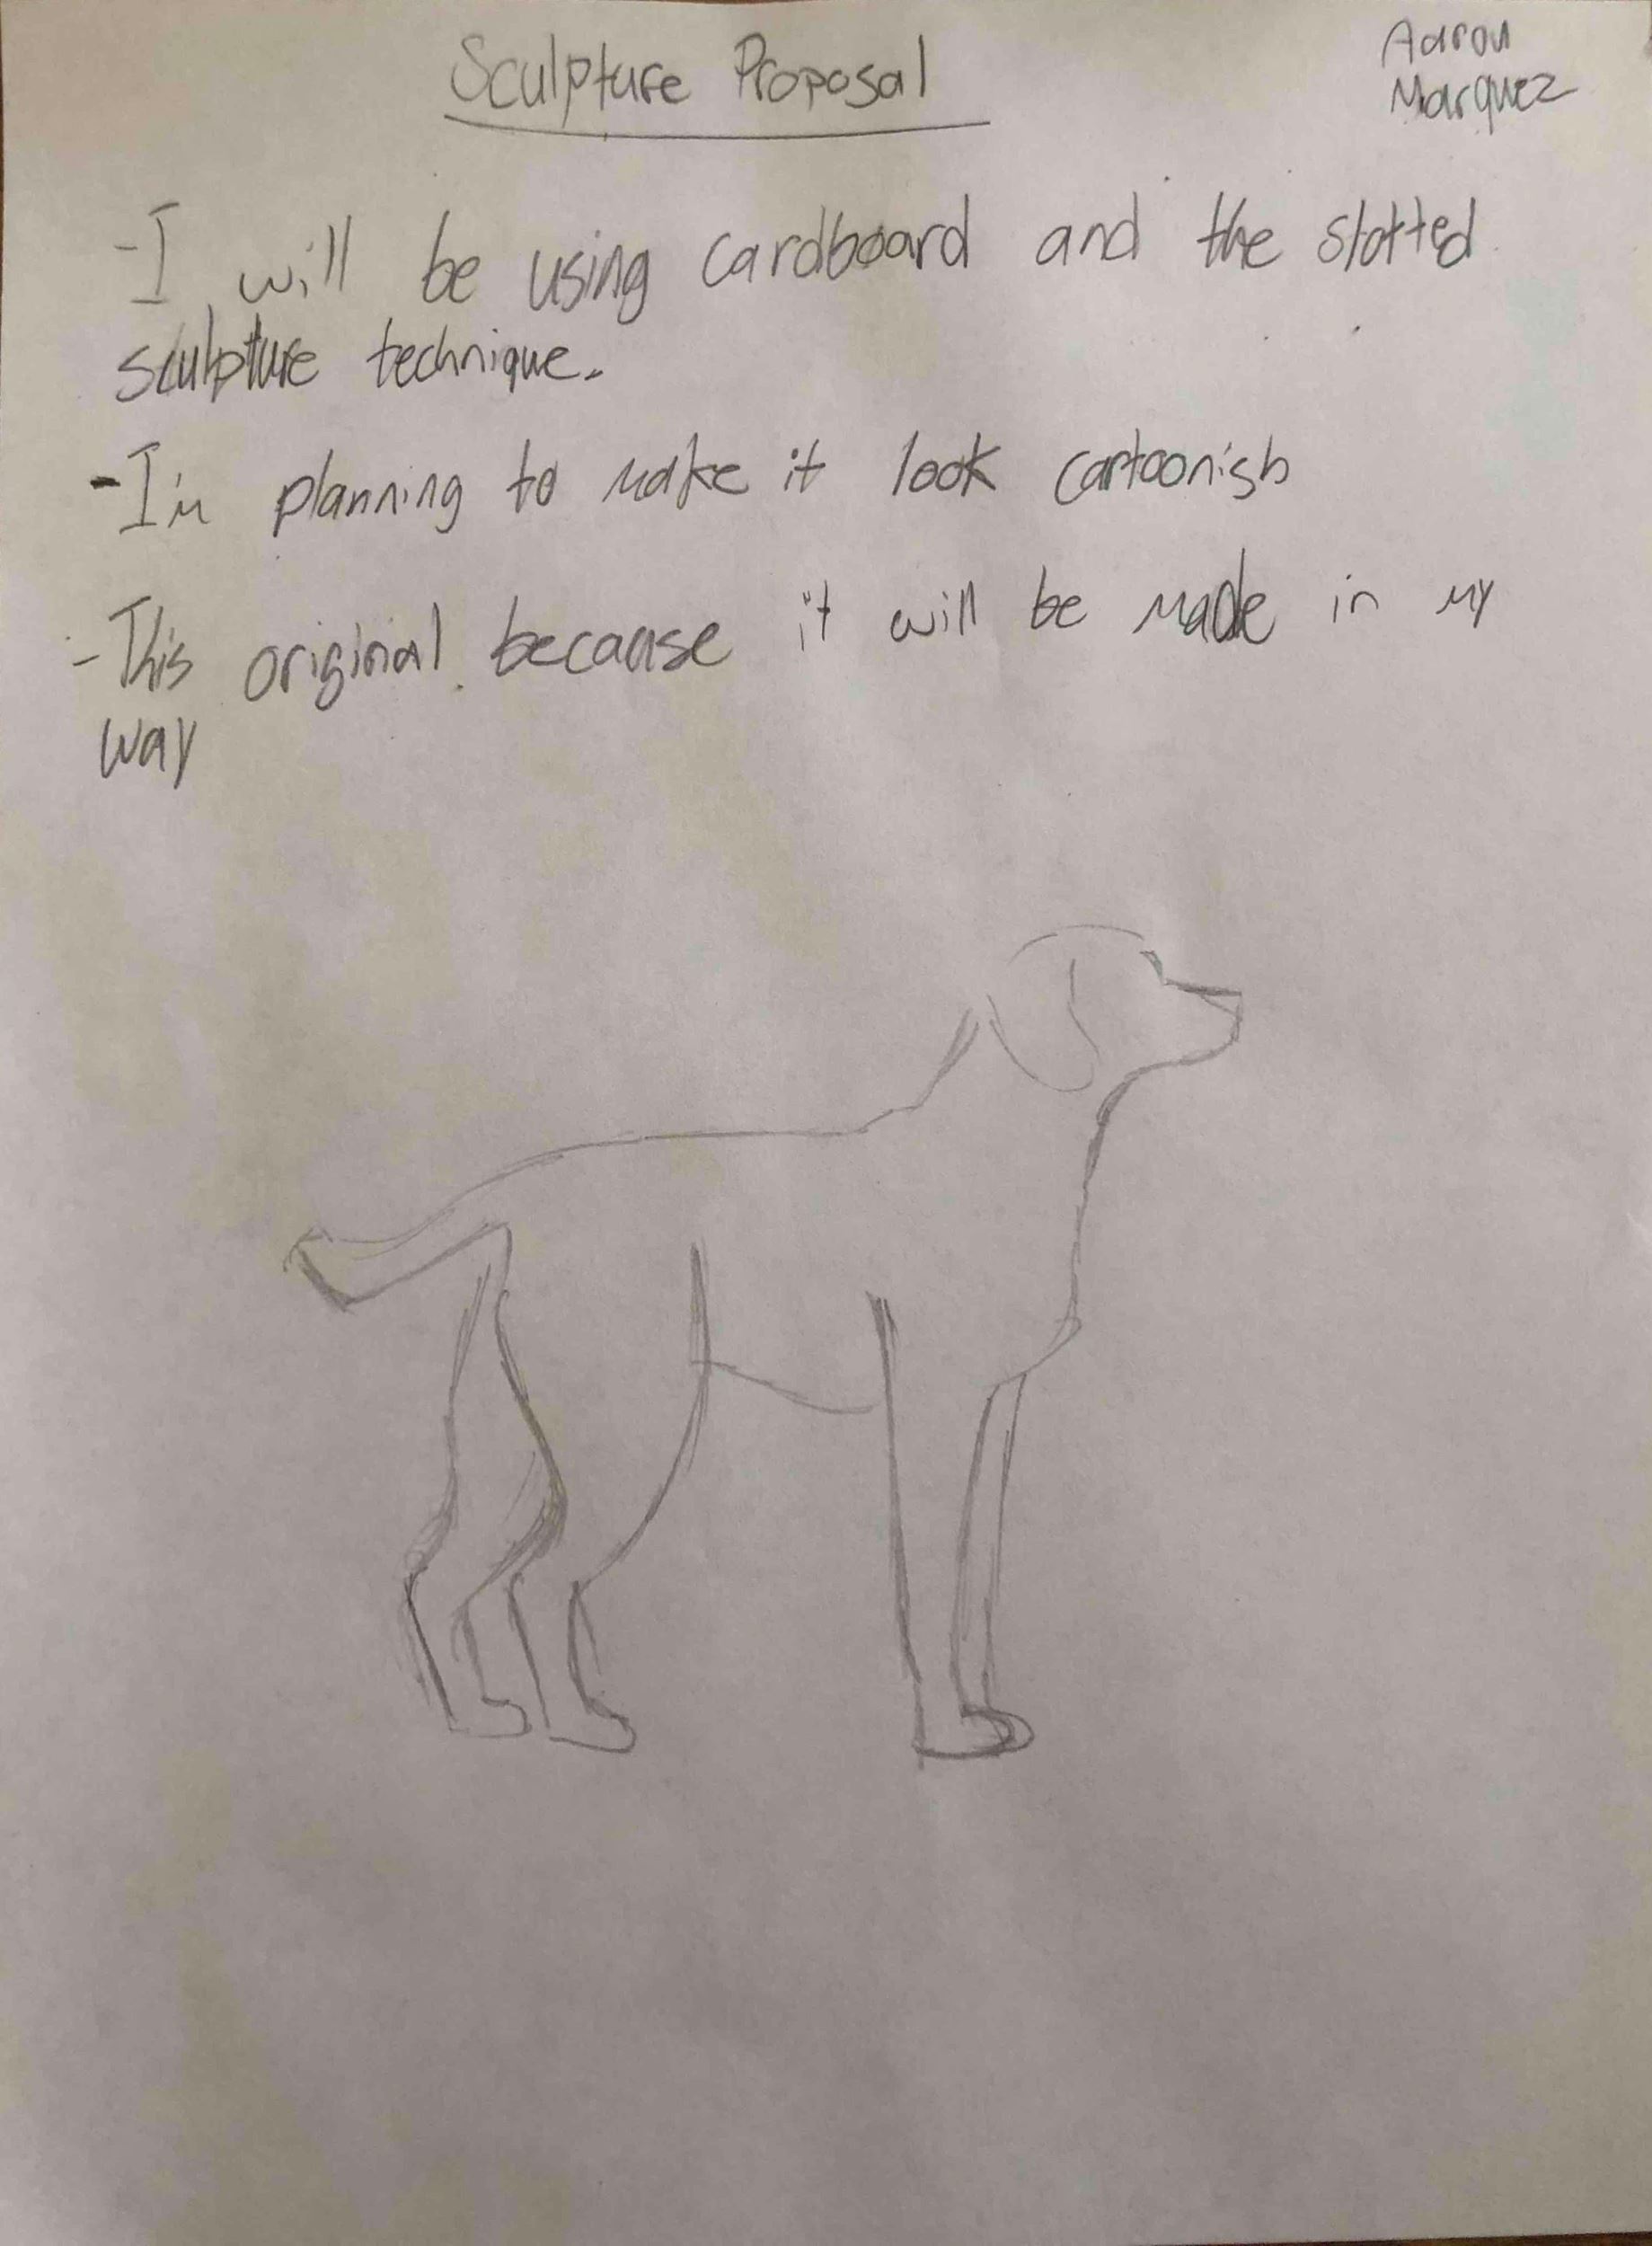 Sculpture Proposal
Aaron
Marquez
-I will be using cardboard and the slotted
sculpture technique.
-I'm planning to make it look cartoonish
-This original because it will be made in my
way